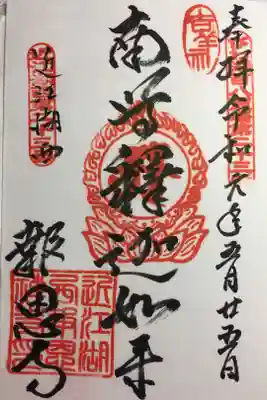 奉拝 令和六年五月廿五日
吉祥
南無釋迦如来
近江湖西
報恩寺
近江湖
西報恩